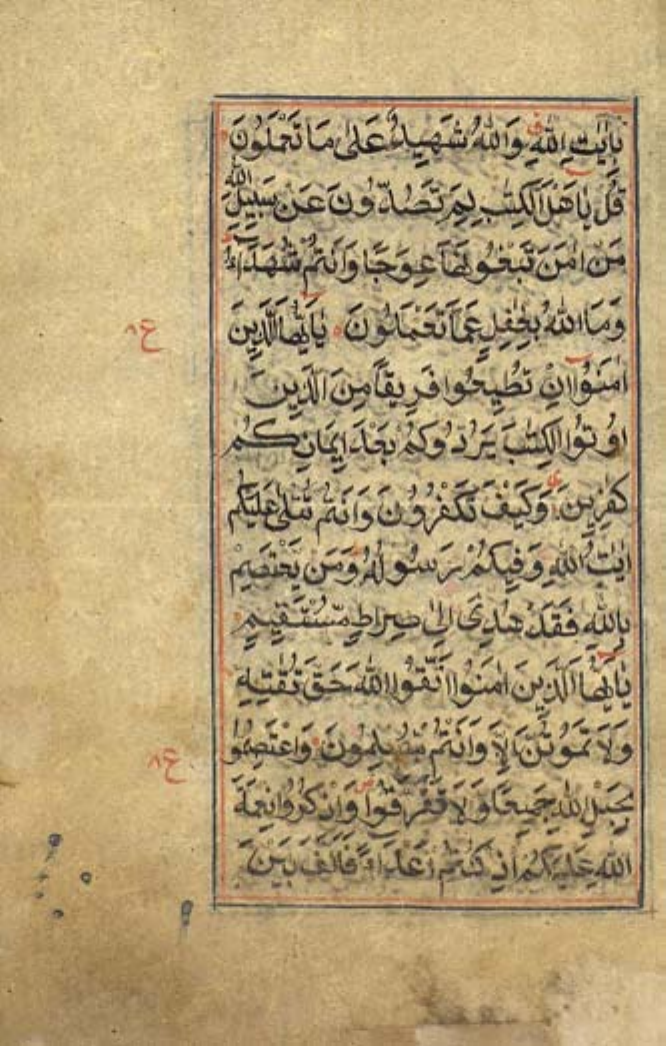 بِاٰيٰتِ اللّٰهِ وَاللّٰهُ شَهِيدٌ عَلٰى مَا تَعْمَلُونَ
قُلْ يٰاَهْلَ الْكِتٰبِ لِمَ تَصُدُّونَ عَنْ سَبِيلِ اللّٰهِ
مَنْ اٰمَنَ تَبْغُونَهَا عِوَجًا وَاَنْتُمْ شُهَدَاءُ
وَمَا اللّٰهُ بِغٰفِلٍ عَمَّا تَعْمَلُونَ يٰاَيُّهَا الَّذِينَ
اٰمَنُوا اِنْ تُطِيعُوا فَرِيقًا مِنَ الَّذِينَ
اُوتُوا الْكِتٰبَ يَرُدُّوكُمْ بَعْدَ اِيمَانِكُمْ
كٰفِرِينَ وَكَيْفَ تَكْفُرُونَ وَاَنْتُمْ تُتْلٰى عَلَيْكُمْ
اٰيٰتُ اللّٰهِ وَفِيكُمْ رَسُولُهُ وَمَنْ يَعْتَصِمْ
بِاللّٰهِ فَقَدْ هُدِىَ اِلٰى صِرَاطٍ مُسْتَقِيمٍ
يٰاَيُّهَا الَّذِينَ اٰمَنُوا اتَّقُوا اللّٰهَ حَقَّ تُقٰتِهِ
وَلَا تَمُوتُنَّ اِلَّا وَاَنْتُمْ مُسْلِمُونَ وَاعْتَصِمُوا
بِحَبْلِ اللّٰهِ جَمِيعًا وَلَا تَفَرَّقُوا وَاذْكُرُوا نِعْمَةَ
اللّٰهِ عَلَيْكُمْ اِذْ كُنْتُمْ اَعْدَاءً فَاَلَّفَ بَيْنَ
ع٨
ع٨